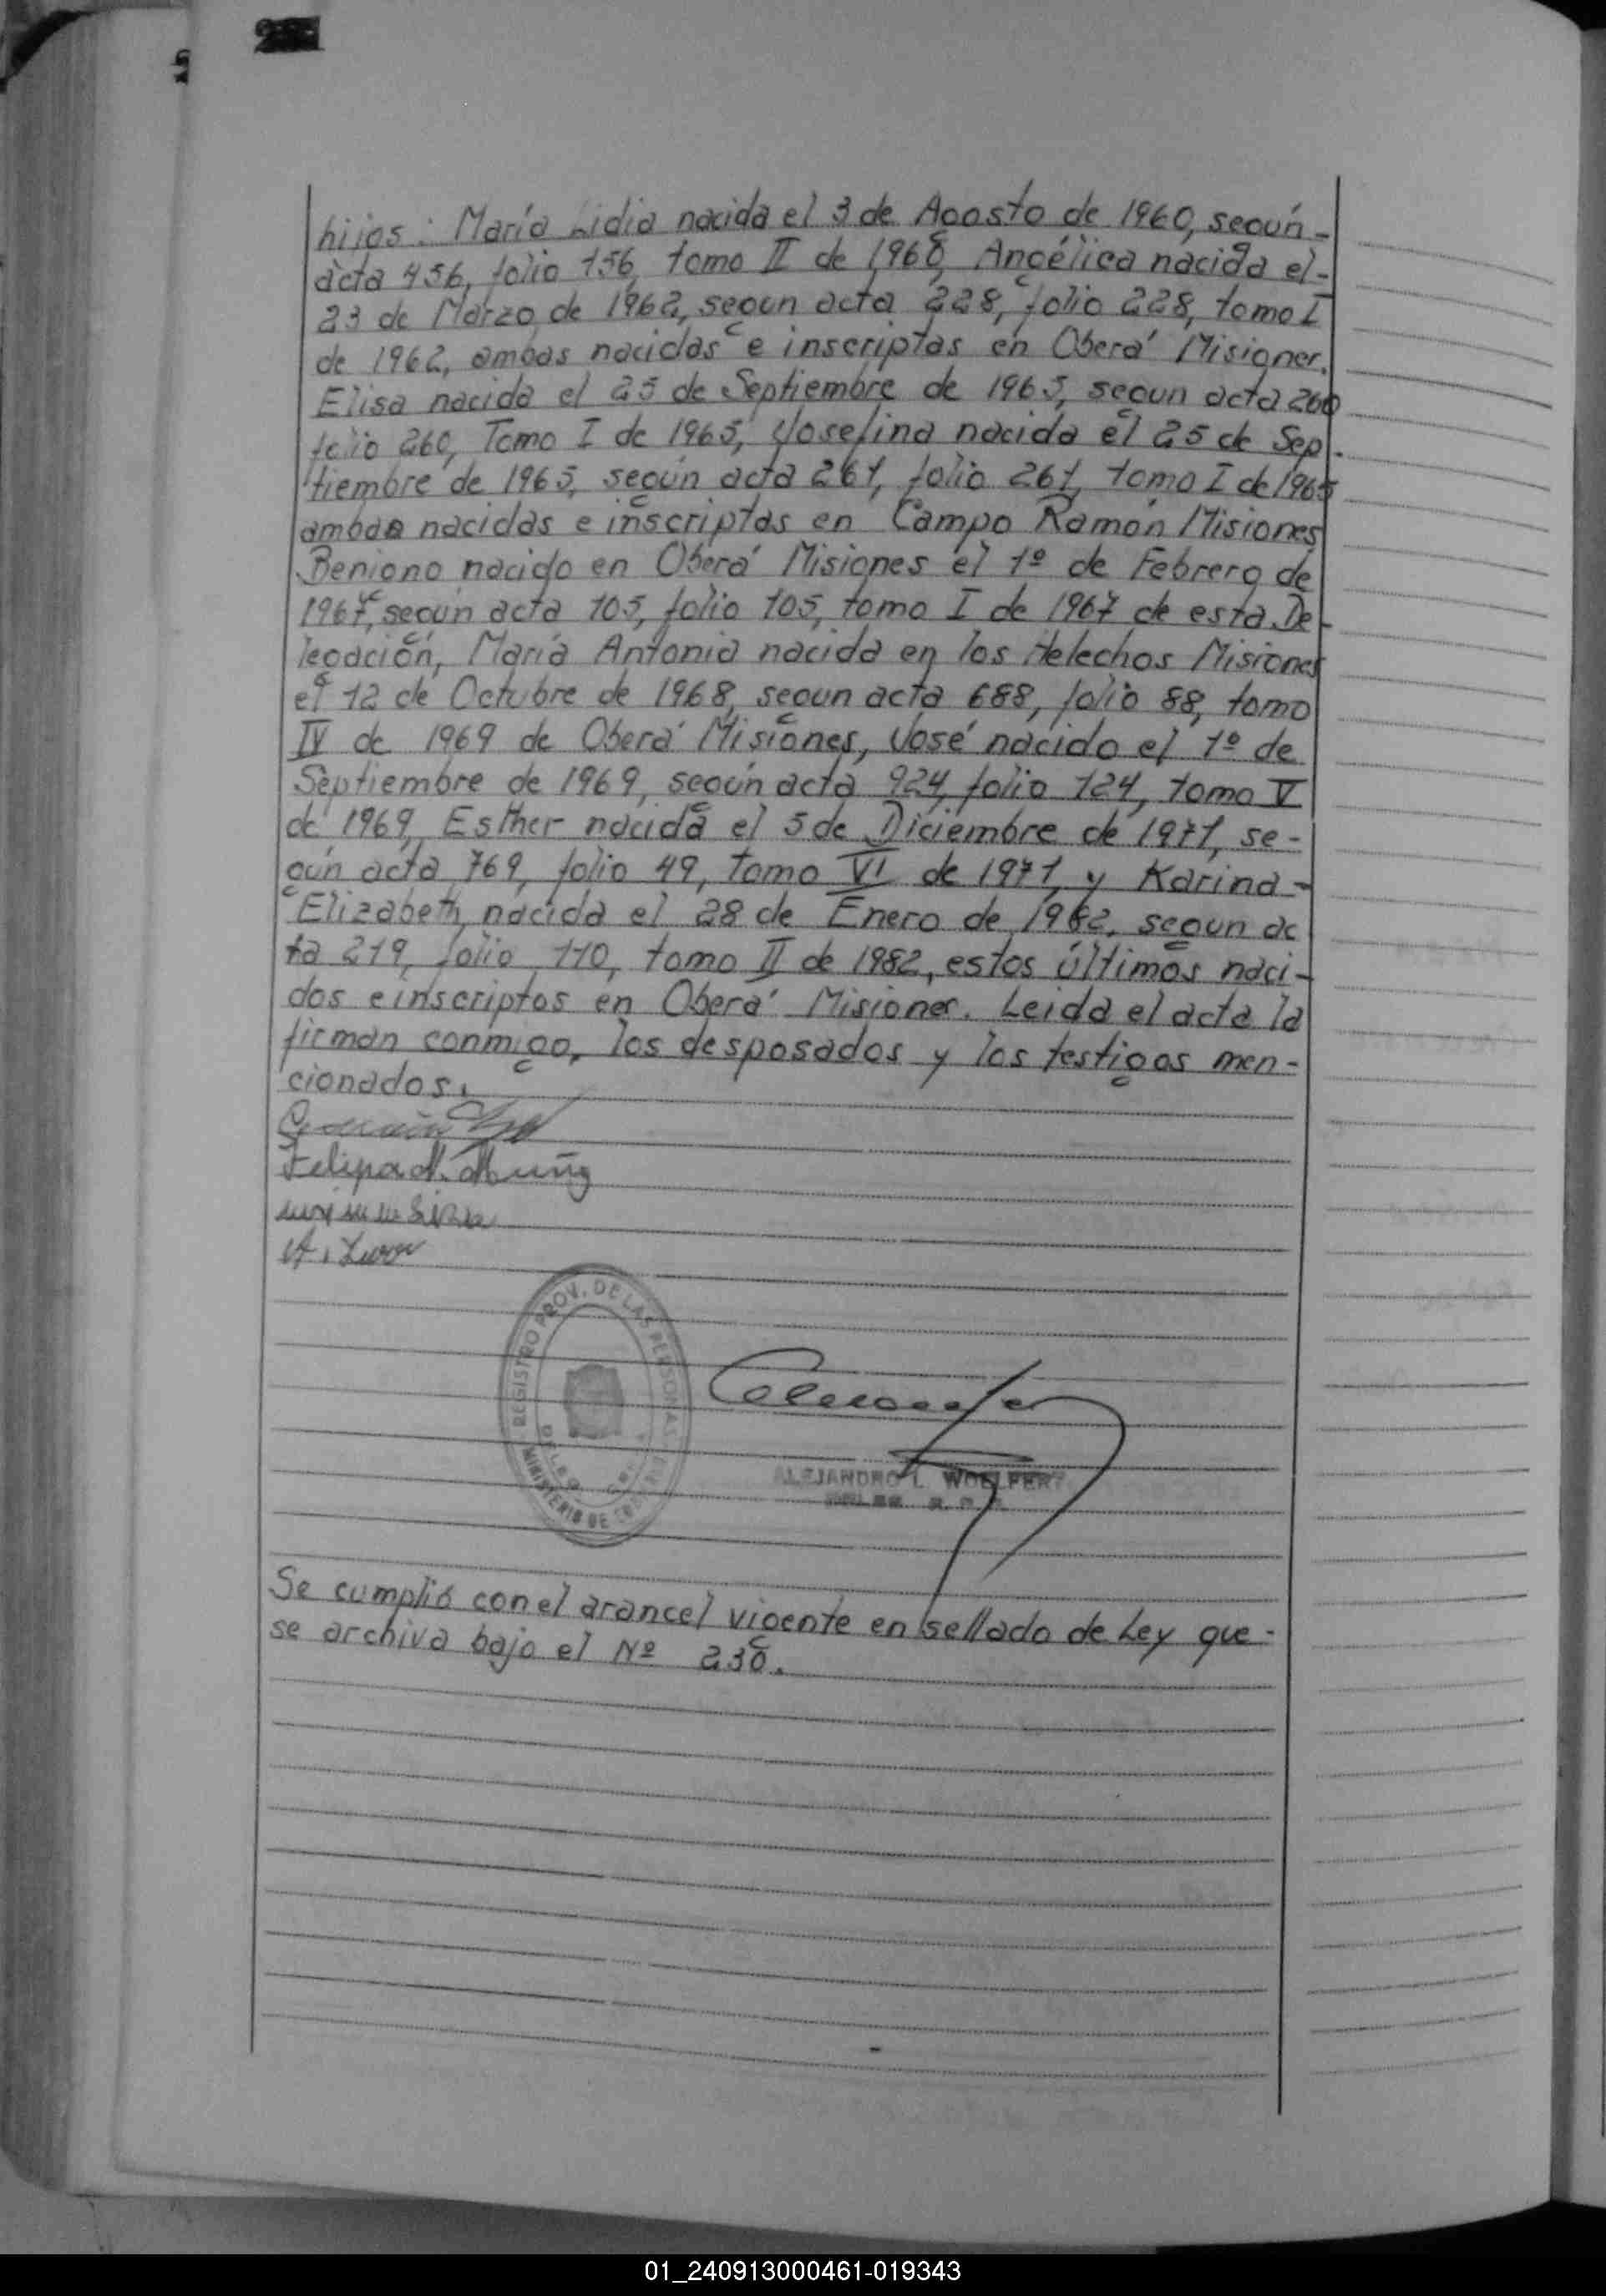 hijos: María Lidia nacida el 3 de Agosto de 1960, según-
acta 456, folio 156, tomo II de 1960, Angélica nacida el-
23 de Marzo de 1962, segun acta 228, folio 228, tomo I
de 1962, ambas nacidas e inscriptas en Oberá Misiones.
Elisa nacida el 25 de Septiembre de 1965, segun acta 260
folio 260, Tomo I de 1965, Josefina nacida el 25 de Sep-
tiembre de 1965, según acta 261, folio 261, tomo I de 1965
ambas nacidas e inscriptas en Campo Ramón Misiones
Benigno nacido en Oberá Misiones el 1º de Febrero de
1967, según acta 105, folio 105, tomo I de 1967 de esta De-
legación, María Antonia nacida en los Helechos Misiones
el 12 de Octubre de 1968, segun acta 688, folio 88, tomo
IV de 1969 de Oberá Misiones, José nacido el 1º de
Septiembre de 1969, según acta 924, folio 124, tomo V
de 1969, Esther nacida el 5 de Diciembre de 1971, se-
gún acta 769, folio 49, tomo VI de 1971, y Karina-
Elizabeth nacida el 28 de Enero de 1982, segun ac
ta 219, folio 110, tomo II de 1982, estos últimos naci-
dos e inscriptos en Oberá Misiones. Leida el acta la
firman conmigo, los desposados y los testigos men-
cionados.
Felipa
REGISTRO PROV. DE LAS PERSONAS
MINISTERIO DE
ALEJANDRO L. WOELFERT
Se cumplió con el arancel vigente en sellado de Ley que-
se archiva bajo el Nº 230.
01_240913000461-019343